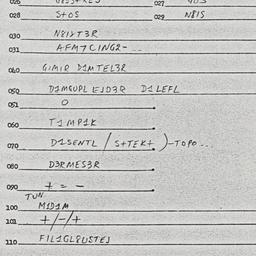 028 S+OS 029 N8IS
030 N8IVT3R
031 AFM7CING2-...
040 GIMIR D1MTEL3R
050 D1MGUPL EJD3R D1LEFL
051 O
060 T1MP1K
070 D1SENTL / S+TEK+ )-TOPO...
080 D3RMES3R
090 + = -
TUN
100 M1D1M
101 +/-/+
110 FIL1GLPUSTEJ